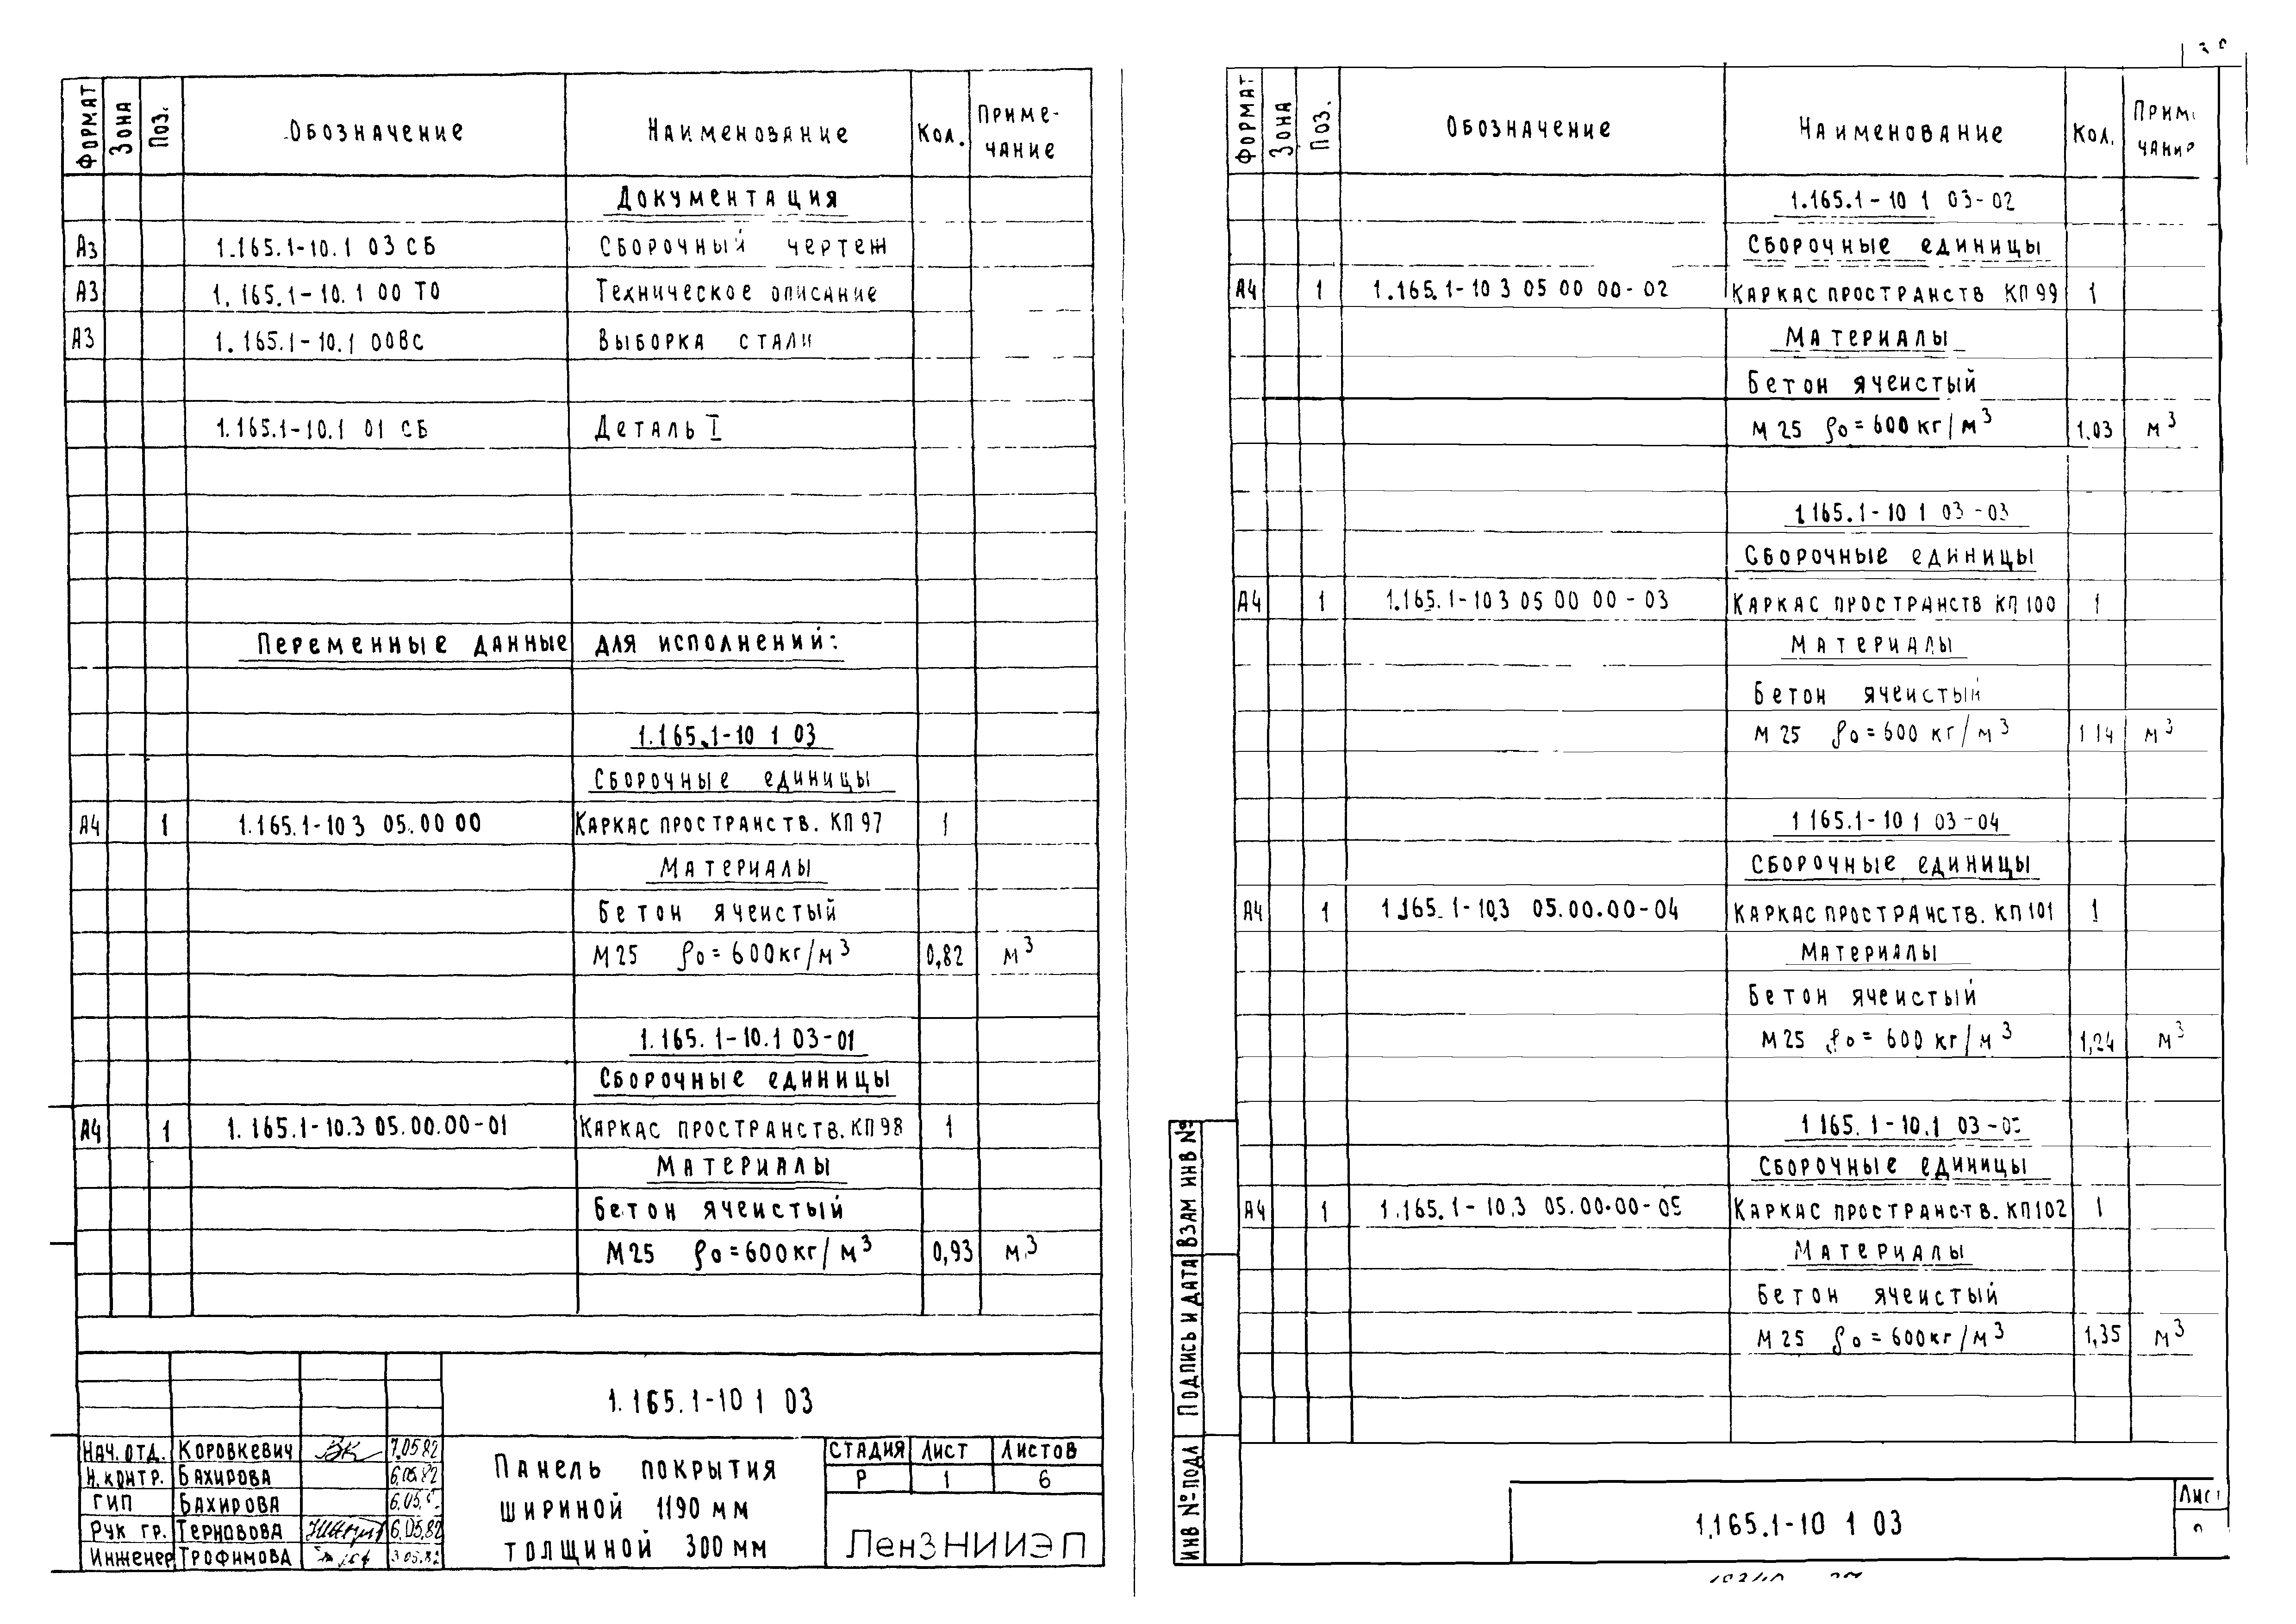 Формат Зона Поз. Обозначение Наименование Кол. Примечание
Документация
А3 1.165.1-10.1 03 СБ Сборочный чертеж
А3 1.165.1-10.1 00 ТО Техническое описание
А3 1.165.1-10.1 00ВС Выборка стали
1.165.1-10.1 01 СБ Деталь I
Переменные данные для исполнений:
1.165.1-10 1 03
Сборочные единицы
А4 1 1.165.1-10 3 05.00 00 Каркас пространств. КП 97 1
Материалы
Бетон ячеистый
М 25 ρо = 600 кг/м3 0,82 м3
1.165.1-10.1 03-01
Сборочные единицы
А4 1 1.165.1-10.3 05.00.00-01 Каркас пространств. КП 98 1
Материалы
Бетон ячеистый
М 25 ρо = 600 кг/м3 0,93 м3
1.165.1-10 1 03
Нач. отд. Коровкевич 7.05.82
Н. контр. Бахирова 6.05.82
ГИП Бахирова 6.05.
Рук гр. Терновова 6.05.82
Инженер Трофимова 3 05.82
Панель покрытия
шириной 1190 мм
толщиной 300 мм
Стадия Лист Листов
Р 1 6
ЛенЗНИИЭП
Формат Зона Поз. Обозначение Наименование Кол. Прим чание
1.165.1-10 1 03-02
Сборочные единицы
А4 1 1.165.1-10 3 05 00 00-02 Каркас пространств КП 99 1
Материалы
Бетон ячеистый
М 25 ρо = 600 кг/м3 1.03 м3
1.165.1-10 1 03-03
Сборочные единицы
А4 1 1.165.1-10 3 05 00 00-03 Каркас пространств КП 100 1
Материалы
Бетон ячеистый
М 25 ρо = 600 кг/м3 1 14 м3
1 165.1-10 1 03-04
Сборочные единицы
А4 1 1.165.1-10.3 05.00.00-04 Каркас пространств. КП 101 1
Материалы
Бетон ячеистый
М 25 ρо = 600 кг/м3 1,24 м3
1 165.1-10.1 03-0
Сборочные единицы
А4 1 1.165.1-10.3 05.00.00-05 Каркас пространств. КП 102 1
Материалы
Бетон ячеистый
М 25 ρо = 600 кг/м3 1,35 м3
Инв № подл Подпись и дата Взам инв №
1.165.1-10 1 03
Лист